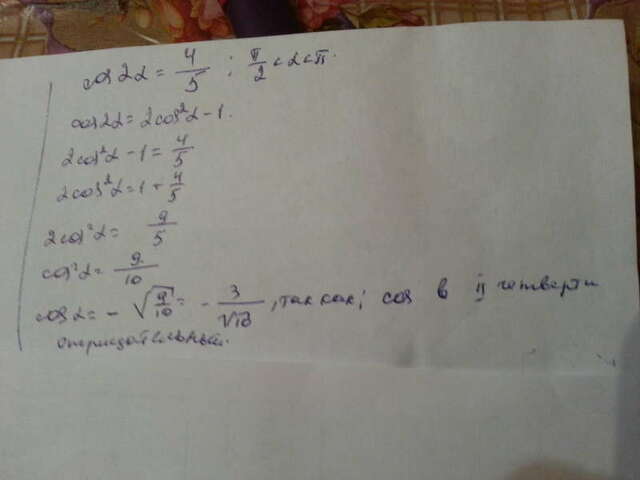 cos 2α = 4/5 ; π/2 < α < π.
cos 2α = 2cos²α - 1.
2cos²α - 1 = 4/5
2cos²α = 1 + 4/5
2cos²α = 9/5
cos²α = 9/10
cos α = - √(9/10) = - 3/√10, так как; cos в II четверти
отрицательный.